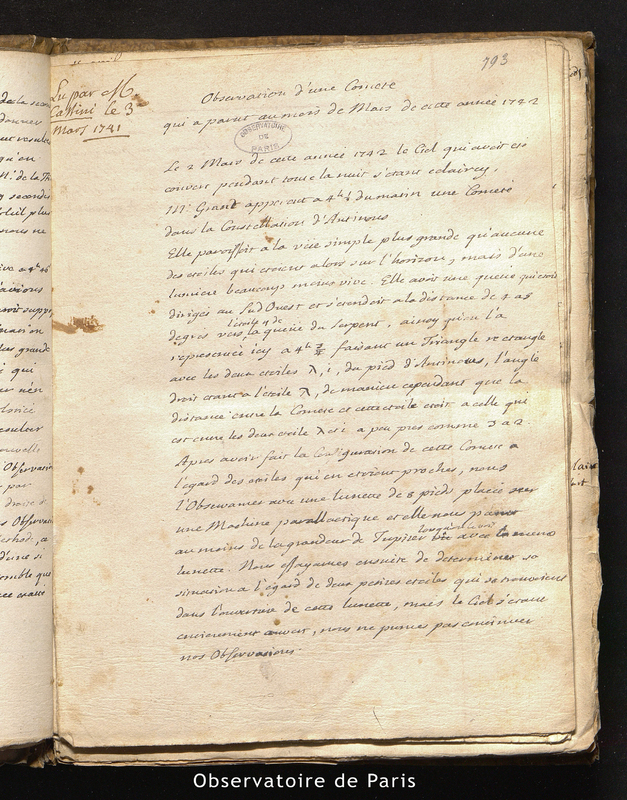 793
Lu par M.
Cassini le 3
Mars 1741
Observation d'une Comete
qui a parut au mois de Mars de cette année 1742
OBSERVATOIRE
DE
PARIS
Le 2 Mars de cette année 1742 le Ciel qui avoit été
couvert pendant toute la nuit s'étant eclairci,
Mr Grant apperceut a 4h du matin une Comete
dans la Constellation d'Antinous
Elle paroissoit a la vüe simple plus grande qu'aucune
des etoiles qui etoient alors sur l'horizon, mais d'une
lumiere beaucoup moins vive. Elle avoit une queüe qui etoit
dirigée au Sud Ouest et s'etendoit a la distance de 4 a 5
l'étoile η de
degrés vers la queüe du Serpent, ainsy qu'on l'a
representée icy a 4h faisant un Triangle rectangle
avec les deux etoiles λ, i, du pied d'Antinous, l'angle
droit etant a l'étoile λ, de maniere cependant que la
distance entre la Comete et cette etoile etoit a celle qui
est entre les deux etoile λ et i a peu pres comme 3 a 2.
Apres avoir fait la Configuration de cette Comete a
l'égard des etoiles qui en etoient proches, nous
l'Observames avec une lunette de 8 pieds placée sur
une Machine parallactique et elle nous parut
au moins de la grandeur de Jupiter avec la meme
lunette. Nous essayames ensuite de determiner sa
situation a l'égard de deux petites etoiles qui se trouvoient
dans l'ouverture de cette lunette, mais le Ciel s'etant
entierement couvert, nous ne pumes pas continuer
nos Observations.
Observatoire de Paris